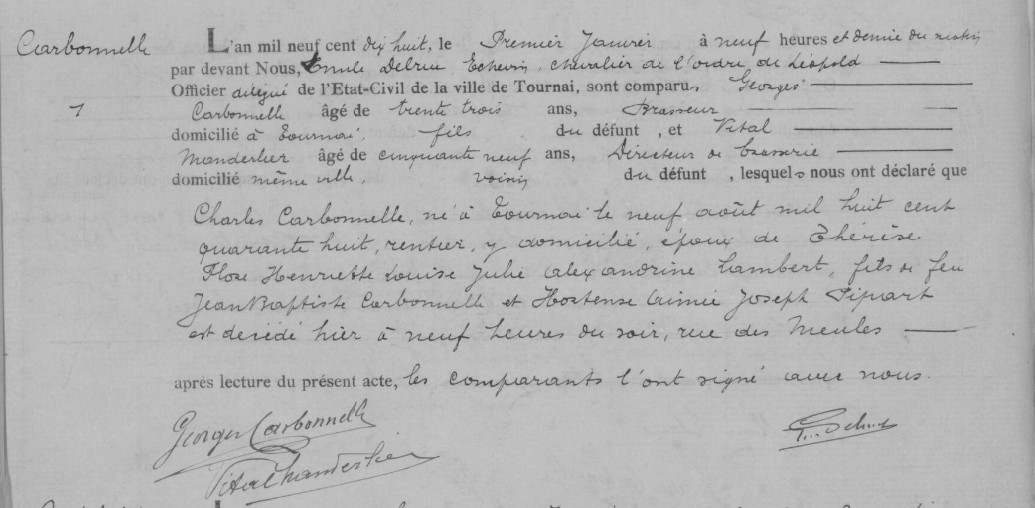 Carbonnelle
L'an mil neuf cent dix huit, le Premier Janvier à neuf heures et demie du matin
par devant Nous, Emile Delrue Echevin, chevalier de l'ordre de Léopold
Officier délégué de l'Etat-Civil de la ville de Tournai, sont comparus Georges
1
Carbonnelle âgé de trente trois ans, Brasseur
domicilié à Tournai, fils du défunt, et Vital
Manderlier âgé de cinquante neuf ans, Directeur de brasserie
domicilié même ville, voisin du défunt, lesquels nous ont déclaré que
Charles Carbonnelle, né à Tournai le neuf août mil huit cent
quarante huit, rentier, y domicilié, époux de Thérèse
Flore Henriette Louise Julie Alexandrine Lambert, fils de feu
Jean Baptiste Carbonnelle et Hortense Aimée Joseph Pipart
est décédé hier à neuf heures du soir, rue des Meules
après lecture du présent acte, les comparants l'ont signé avec nous.
Georges Carbonnelle
Vital Manderlier